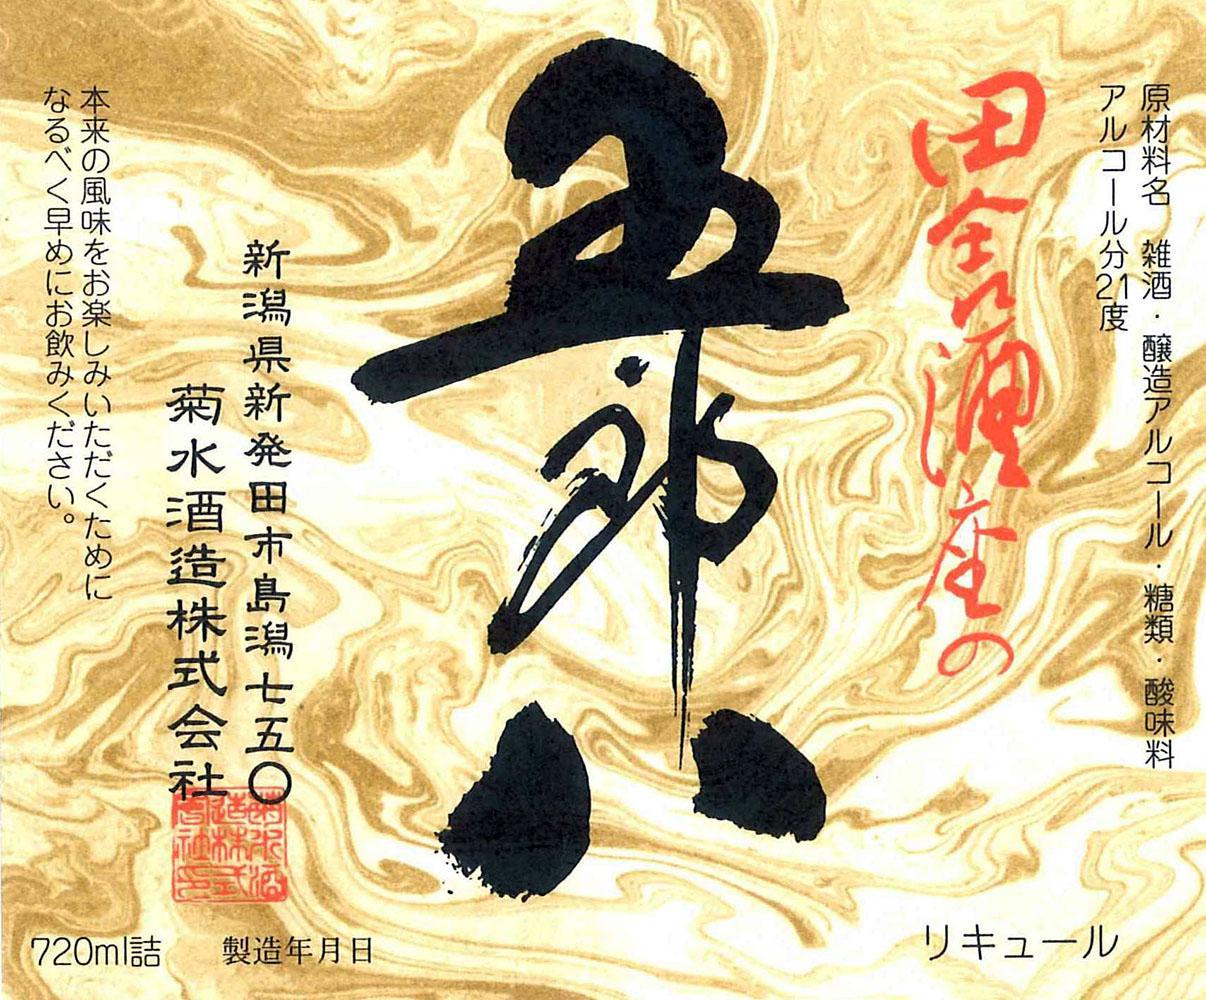 原材料名 雑酒・醸造アルコール・糖類・酸味料
アルコール分21度
田舎酒座の
五郎八
新潟県新発田市島潟七五〇
菊水酒造株式会社
菊水酒
造株式
会社之印
本来の風味をお楽しみいただくために
なるべく早めにお飲みください。
720ml詰
製造年月日
リキュール